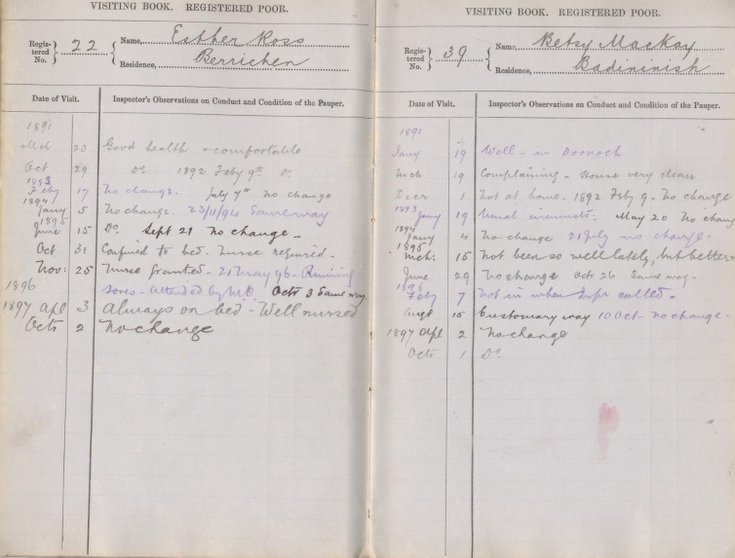 VISITING BOOK. REGISTERED POOR.
Registered No. 22 Name, Esther Ross
Residence, Berrichen
Date of Visit. Inspector's Observations on Conduct and Condition of the Pauper.
1891
Mch 20 Good health & comfortable
Oct 29 Do. 1892 Feby 9th Do.
1893
Feby 17 No change. July 7th No change
1894
Jany 5 No change. 23/11/94 Same way
1895
June 15 Do. Sept 21 No change -
Oct 31 Confined to bed - Nurse required -
Nov: 25 Nurse granted - 21 May 96 - Running
1896 sores - Attended by M.O. Octr 3 Same way
1897 Apl 3 Always on bed - Well nursed
Octr 2 No change
VISITING BOOK. REGISTERED POOR.
Registered No. 39 Name, Betsy MacKay
Residence, Badininish
Date of Visit. Inspector's Observations on Conduct and Condition of the Pauper.
1891
Jany 19 Well - in Dornoch
Mch 19 Complaining - House very clean
Decr 1 Not at home. 1892 Feby 9 - No change
1893
Jany 19 Usual circumsts. May 20 No chang
1894
Jany 4 No change 21 July no change -
1895
Mch: 15 Not been so well lately, but better
June 29 No change Oct 26 Same way -
1896
Feby 7 Not in when Inspr called -
Augt 15 Customary way 10 Oct - No change -
1897 Apl 2 No change
Octr 1 Do.